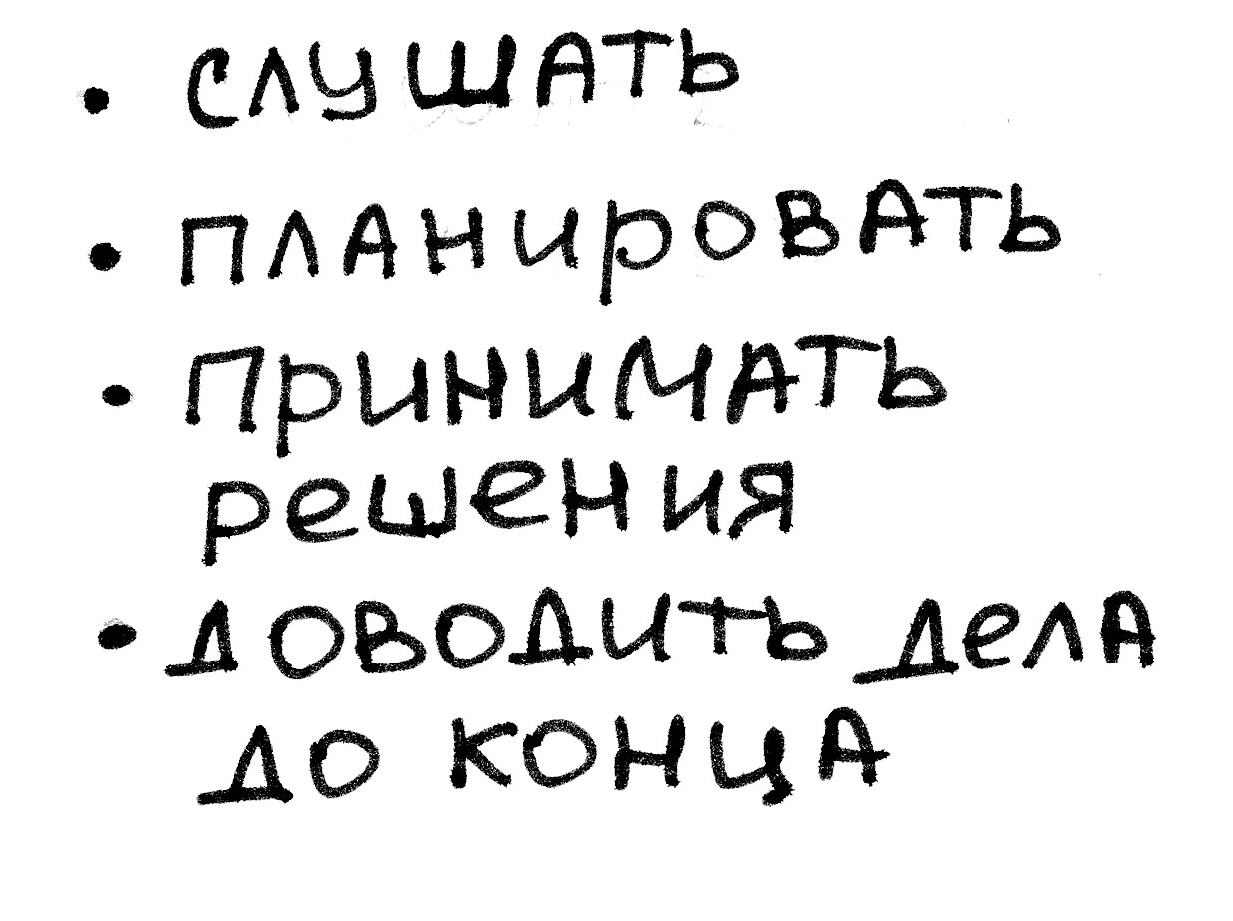 • слушать
• планировать
• принимать
решения
• доводить дела
до конца